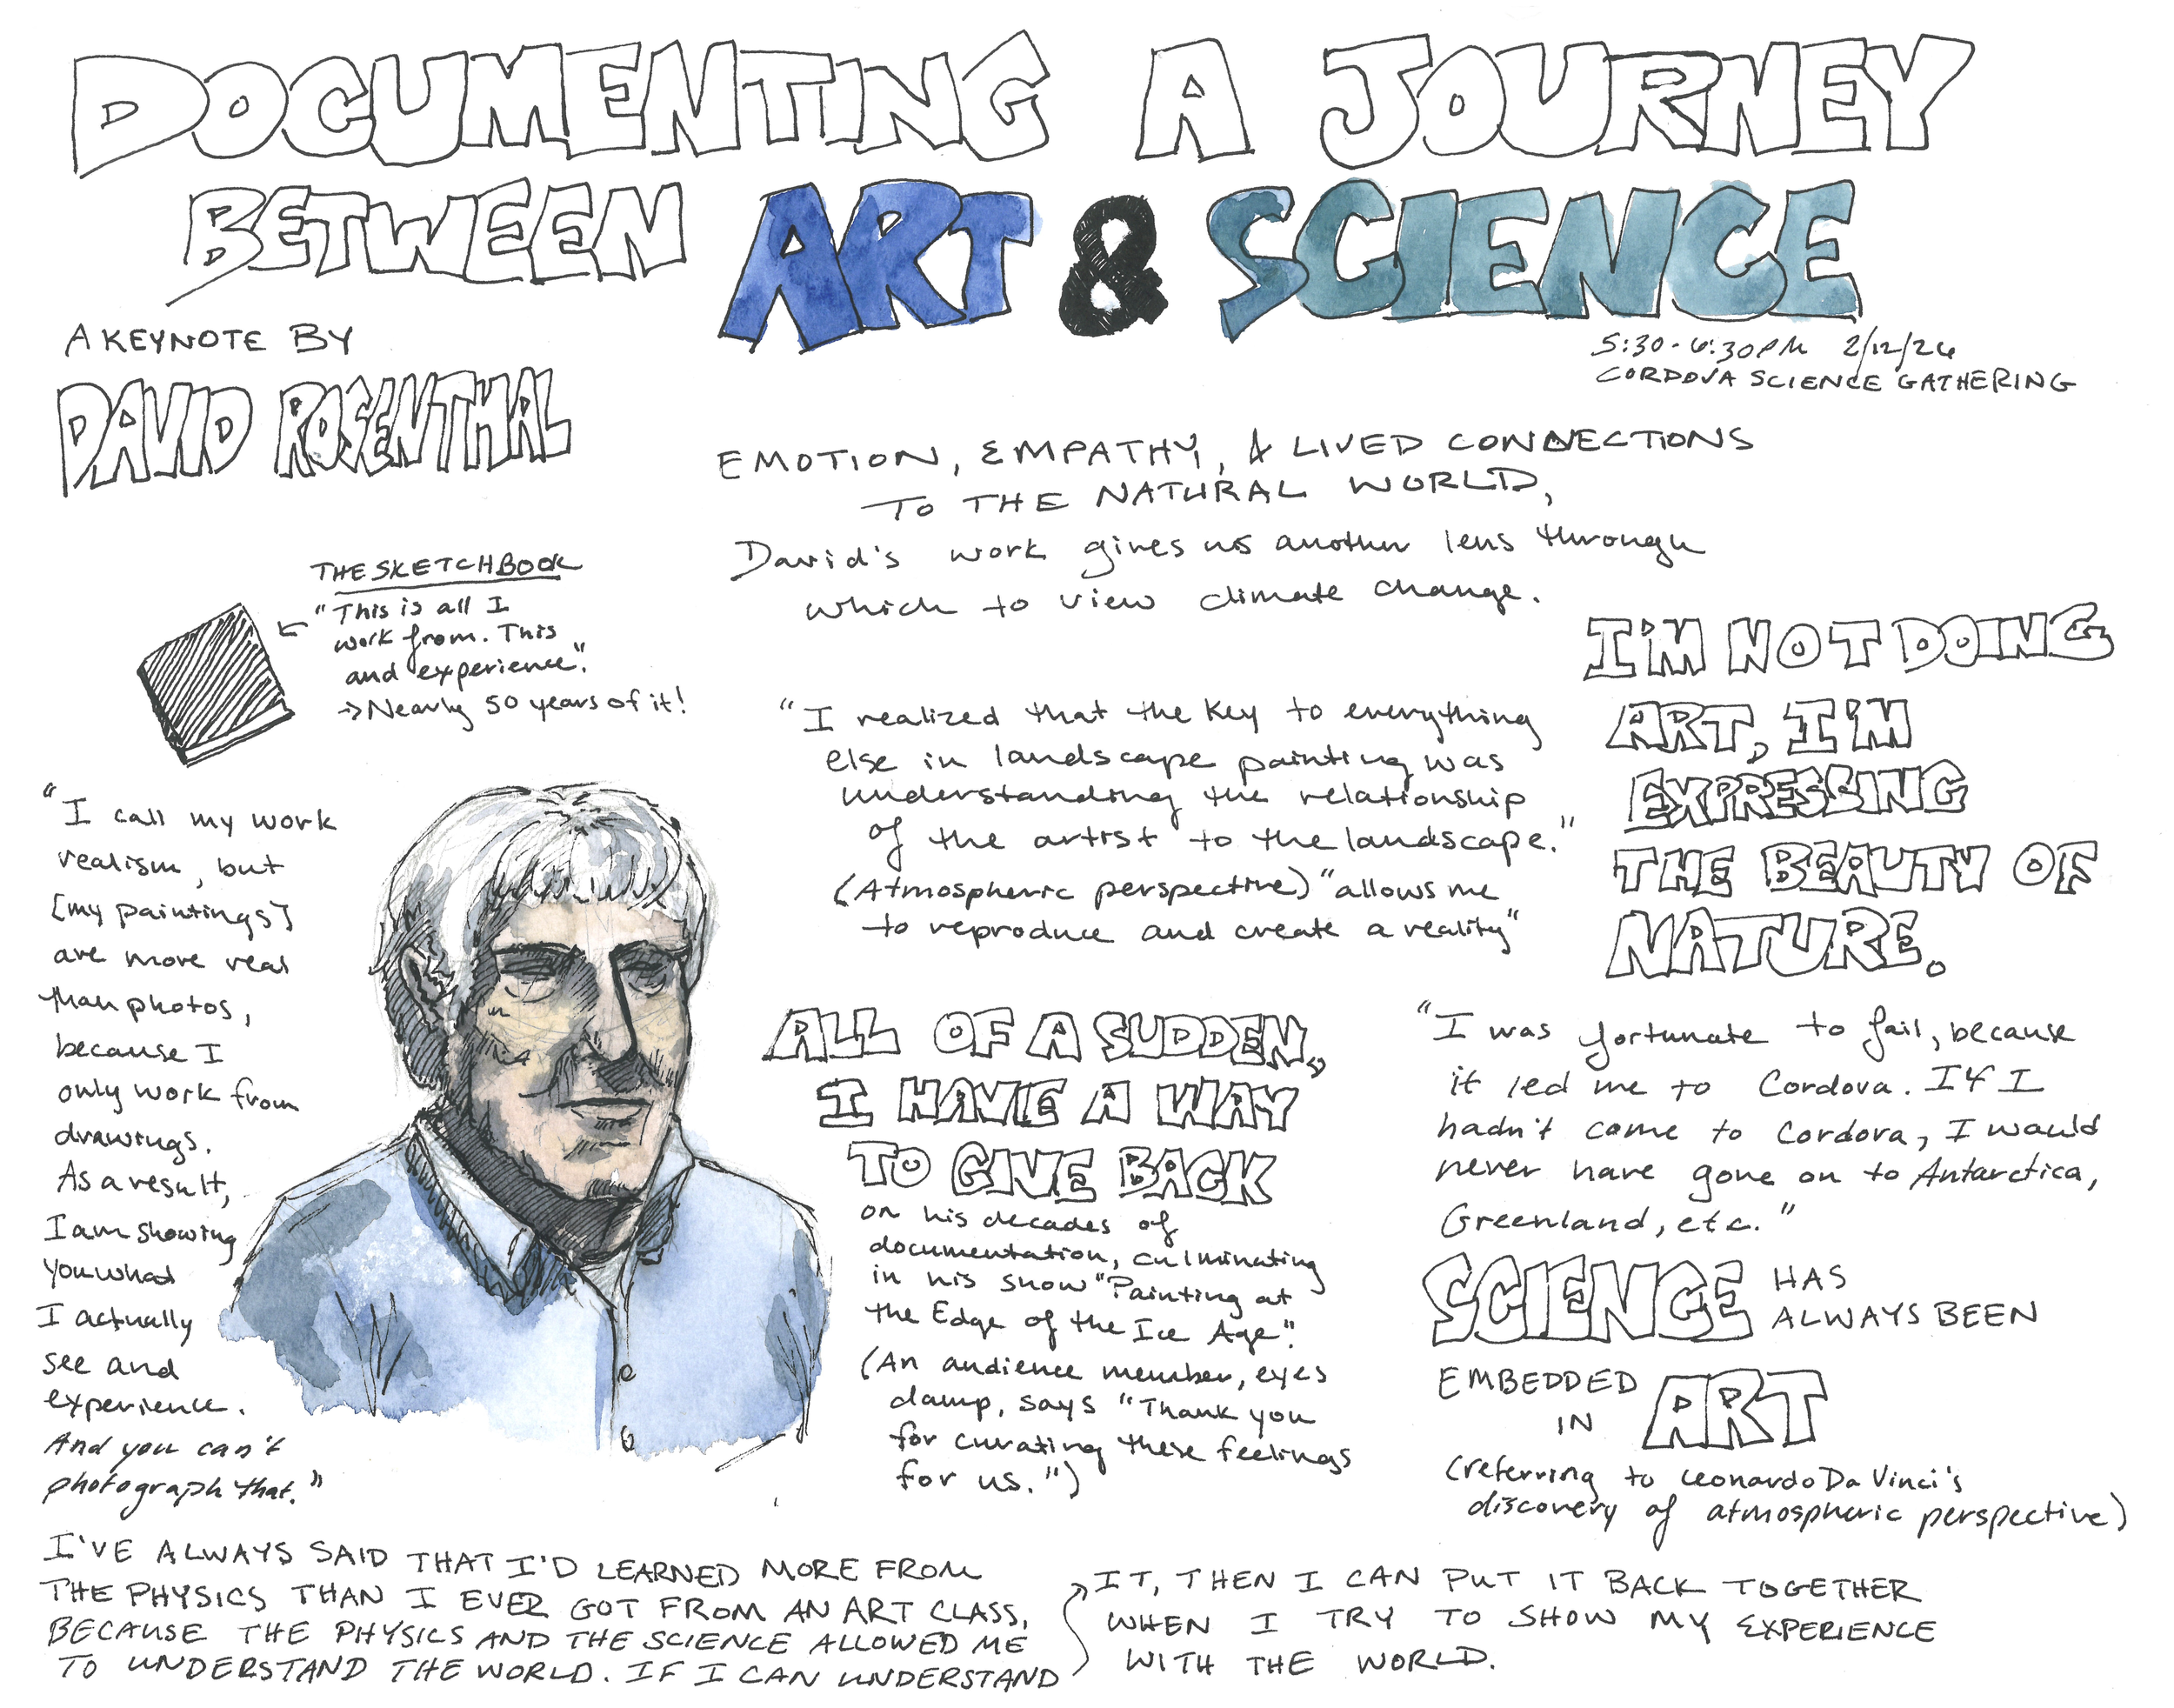 DOCUMENTING A JOURNEY
BETWEEN ART & SCIENCE
A KEYNOTE BY
DAVID ROSENTHAL
5:30-6:30PM 2/12/26
CORDOVA SCIENCE GATHERING
EMOTION, EMPATHY, & LIVED CONNECTIONS
TO THE NATURAL WORLD,
David's work gives us another lens through
which to view climate change.
THE SKETCHBOOK
"This is all I
work from. This
and experience".
→ Nearly 50 years of it!
"I call my work
realism, but
[my paintings]
are more real
than photos,
because I
only work from
drawings.
As a result,
I am showing
you what
I actually
see and
experience.
And you can't
photograph that."
"I realized that the key to everything
else in landscape painting was
understanding the relationship
of the artist to the landscape."
(Atmospheric perspective) "allows me
to reproduce and create a reality"
I'M NOT DOING
ART, I'M
EXPRESSING
THE BEAUTY OF
NATURE.
ALL OF A SUDDEN,
I HAVE A WAY
TO GIVE BACK
on his decades of
documentation, culminating
in his show "Painting at
the Edge of the Ice Age".
(An audience member, eyes
damp, says "Thank you
for curating these feelings
for us.")
"I was fortunate to fail, because
it led me to Cordova. If I
hadn't come to Cordova, I would
never have gone on to Antarctica,
Greenland, etc."
SCIENCE HAS
ALWAYS BEEN
EMBEDDED
IN ART
(referring to Leonardo Da Vinci's
discovery of atmospheric perspective)
I'VE ALWAYS SAID THAT I'D LEARNED MORE FROM
THE PHYSICS THAN I EVER GOT FROM AN ART CLASS,
BECAUSE THE PHYSICS AND THE SCIENCE ALLOWED ME
TO UNDERSTAND THE WORLD. IF I CAN UNDERSTAND
IT, THEN I CAN PUT IT BACK TOGETHER
WHEN I TRY TO SHOW MY EXPERIENCE
WITH THE WORLD.